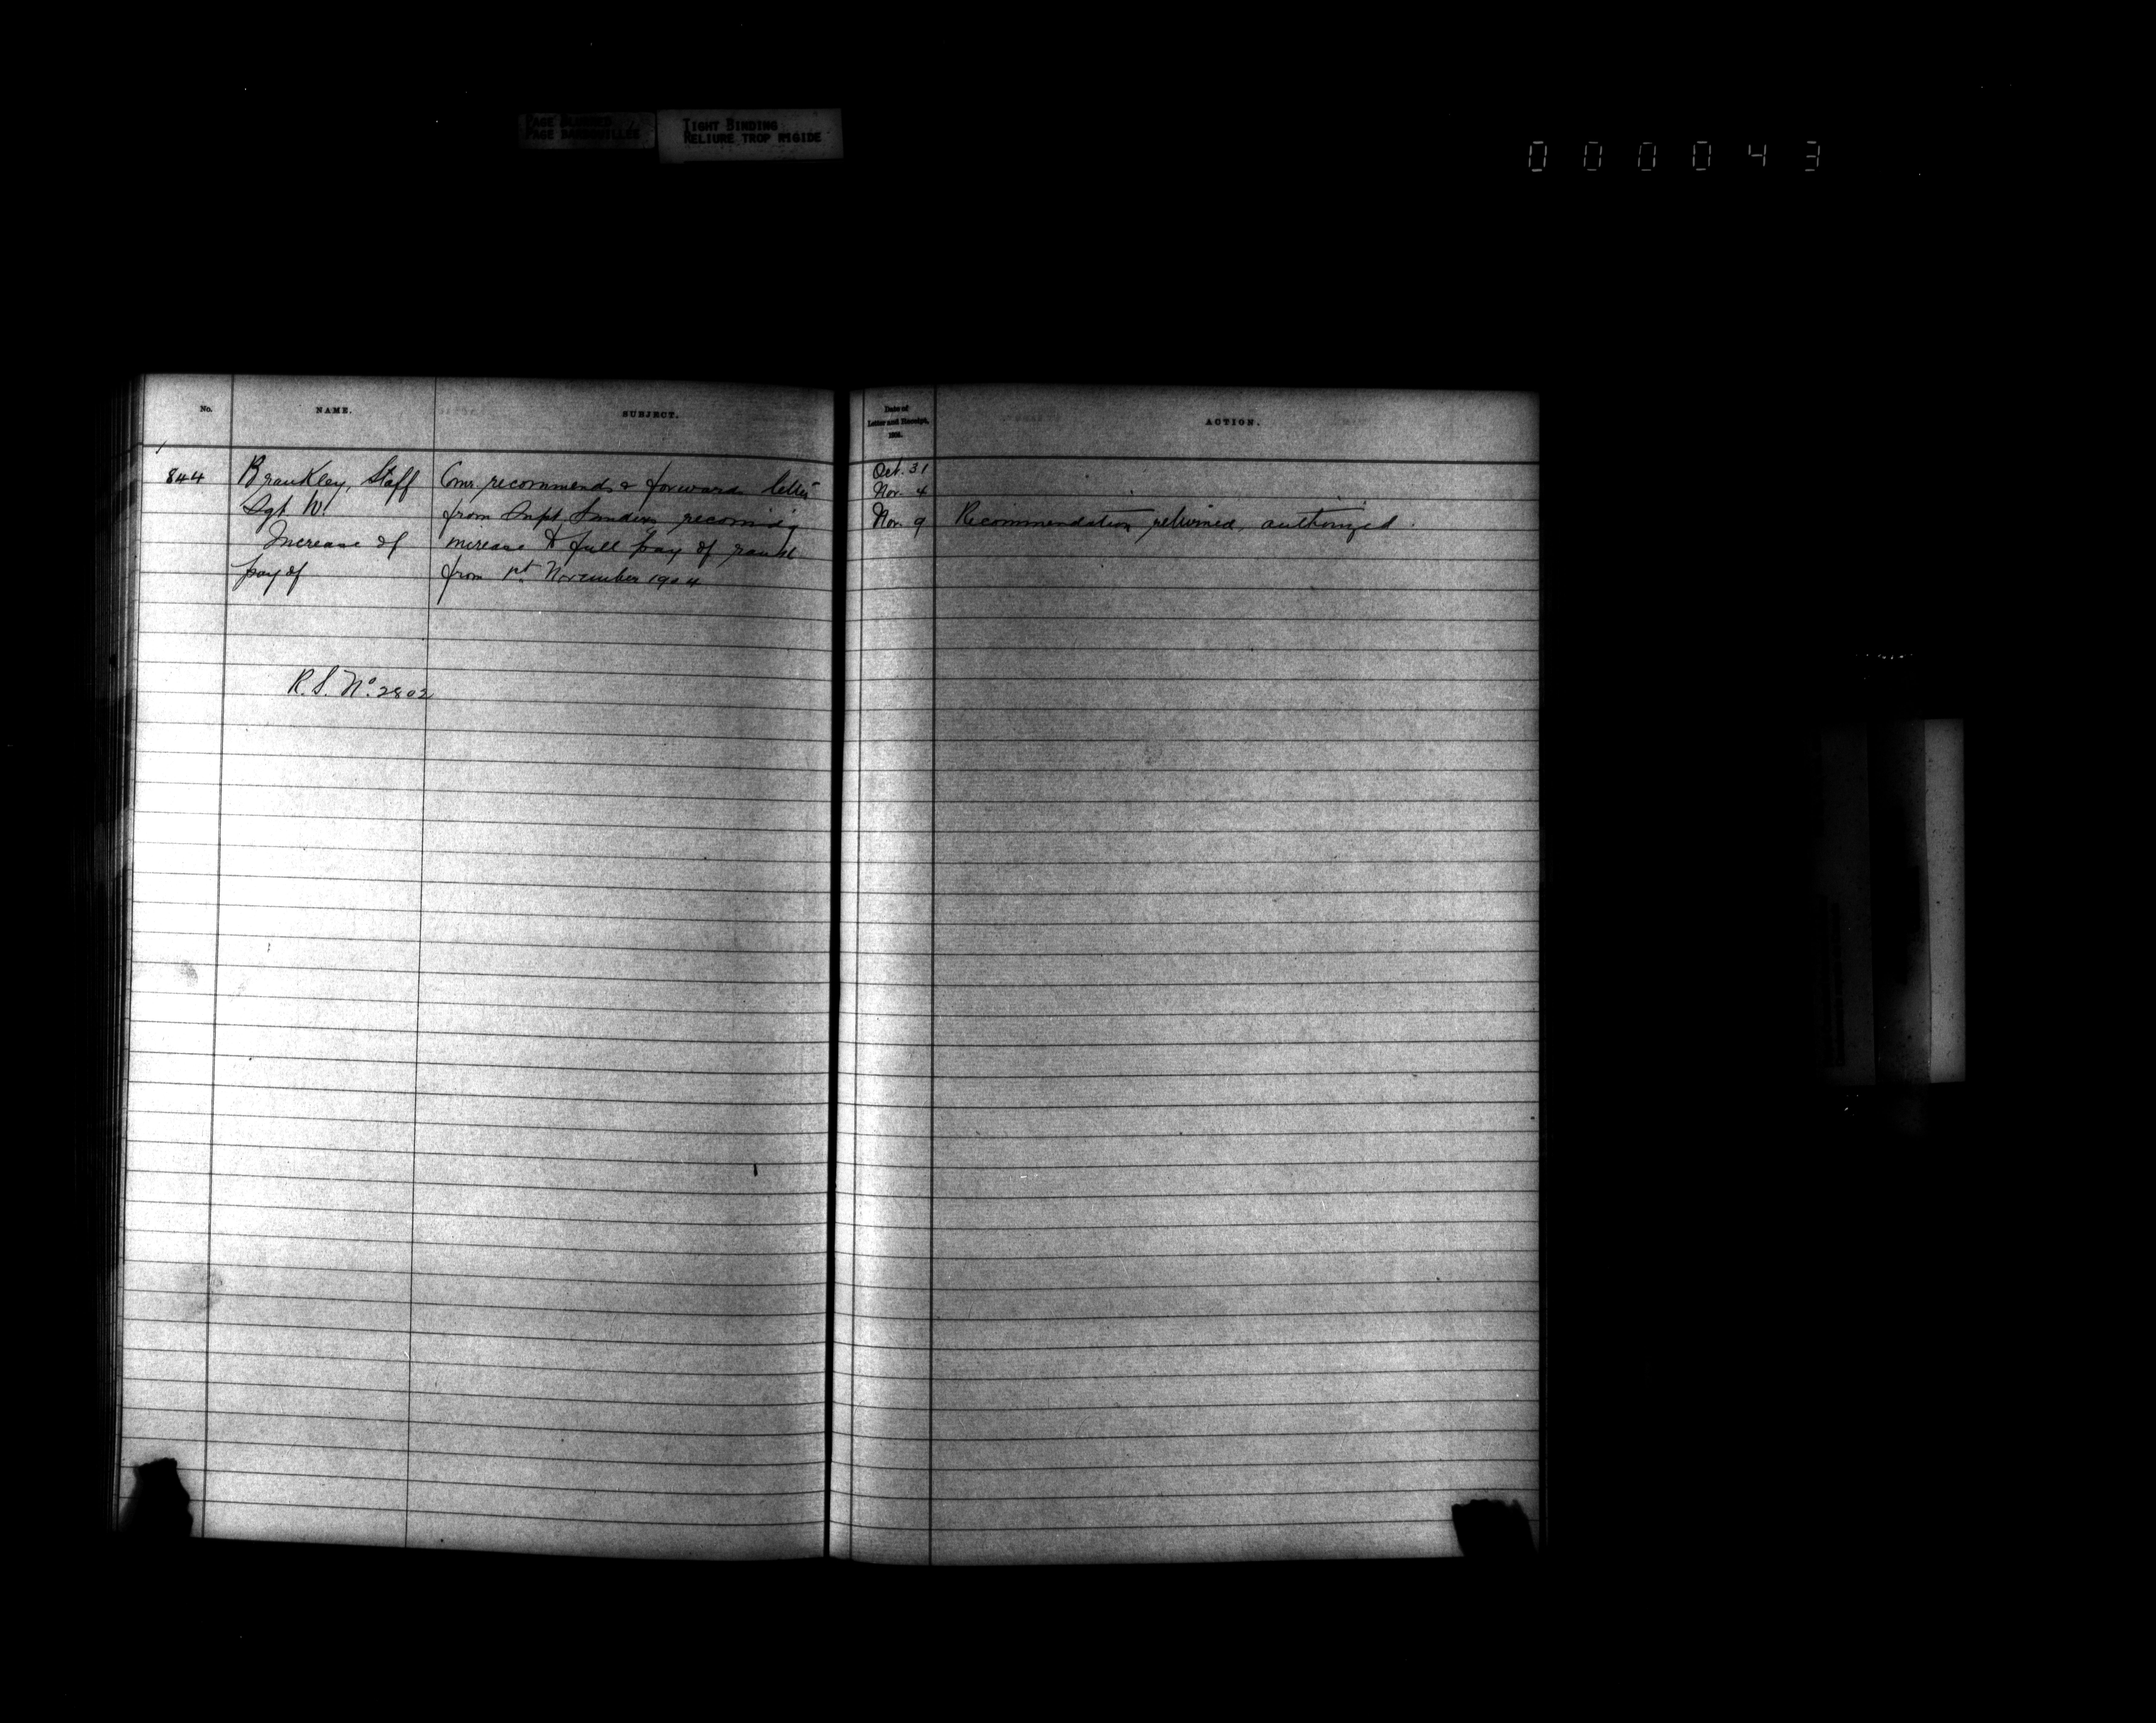 PAGE BLURRED
PAGE BARBOUILLEE
TIGHT BINDING
RELIURE TROP RIGIDE
000043
No.
NAME.
SUBJECT.
Date of
Letter and Receipt,
ACTION.
844
Brankley, Staff
Sgt W.
Increase of
pay of
R.S. No. 2802
Comr recommends & forwards letter
from Supt Sanders recomm'g
increase to full pay of rank
from 1st November 1904
Oct. 31
Nov. 4
Nov. 9
Recommendation returned, authorized.